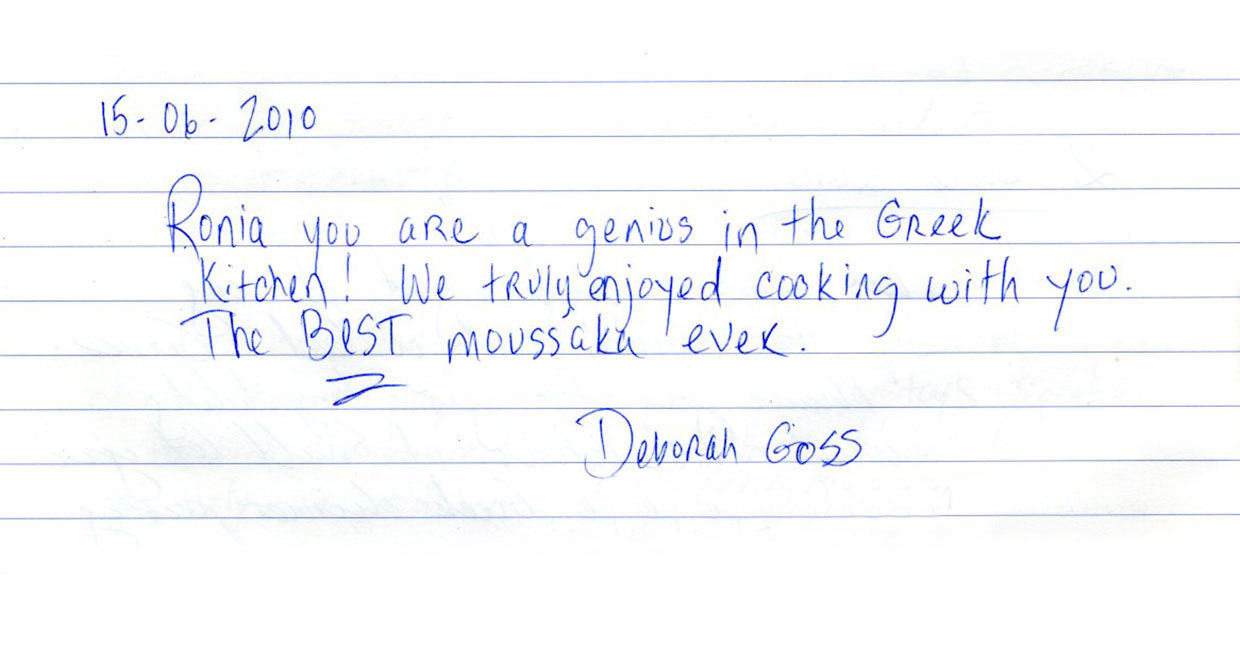 15-06-2010
Ronia you are a genius in the Greek
Kitchen! We truly enjoyed cooking with you.
The BEST moussaka ever.
Deborah Goss